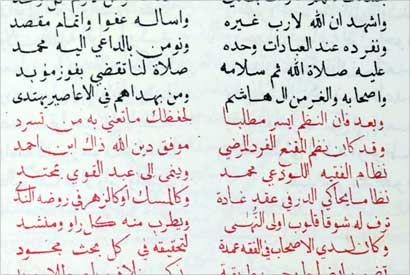 واشهد ان الله لارب غيره واساله عفوا واتمام مقصد
ونفرده عند العبادات وحده ونومن بالداعي اليه محمد
عليه صلاة الله ثم سلامه صلاة لنا تقضي بفوز مؤبد
واصحابه والغر من ال هاشم ومن بهداهم في الاعاصير يهتدى
وبعد فان النظم ايسر مطلبا لحفظك ما نعني به من تسرد
وقد كان نظم المقنع الفرد المرضي موفق دين الله ذاك ابن احمد
نظام الفقيه اللوذعي محمد وينمى الى عبد القوي بمحتد
نظاما يحاكي الدر في عقد غادة وكالمسك او كالزهر في روضه الندي
ترف له شوقا قلوب اولى النهى ويطرب منه كل راو ومنشد
وكان لدى الاصحاب في الفقه عمدة لتحقيقه في كل بحث مجود